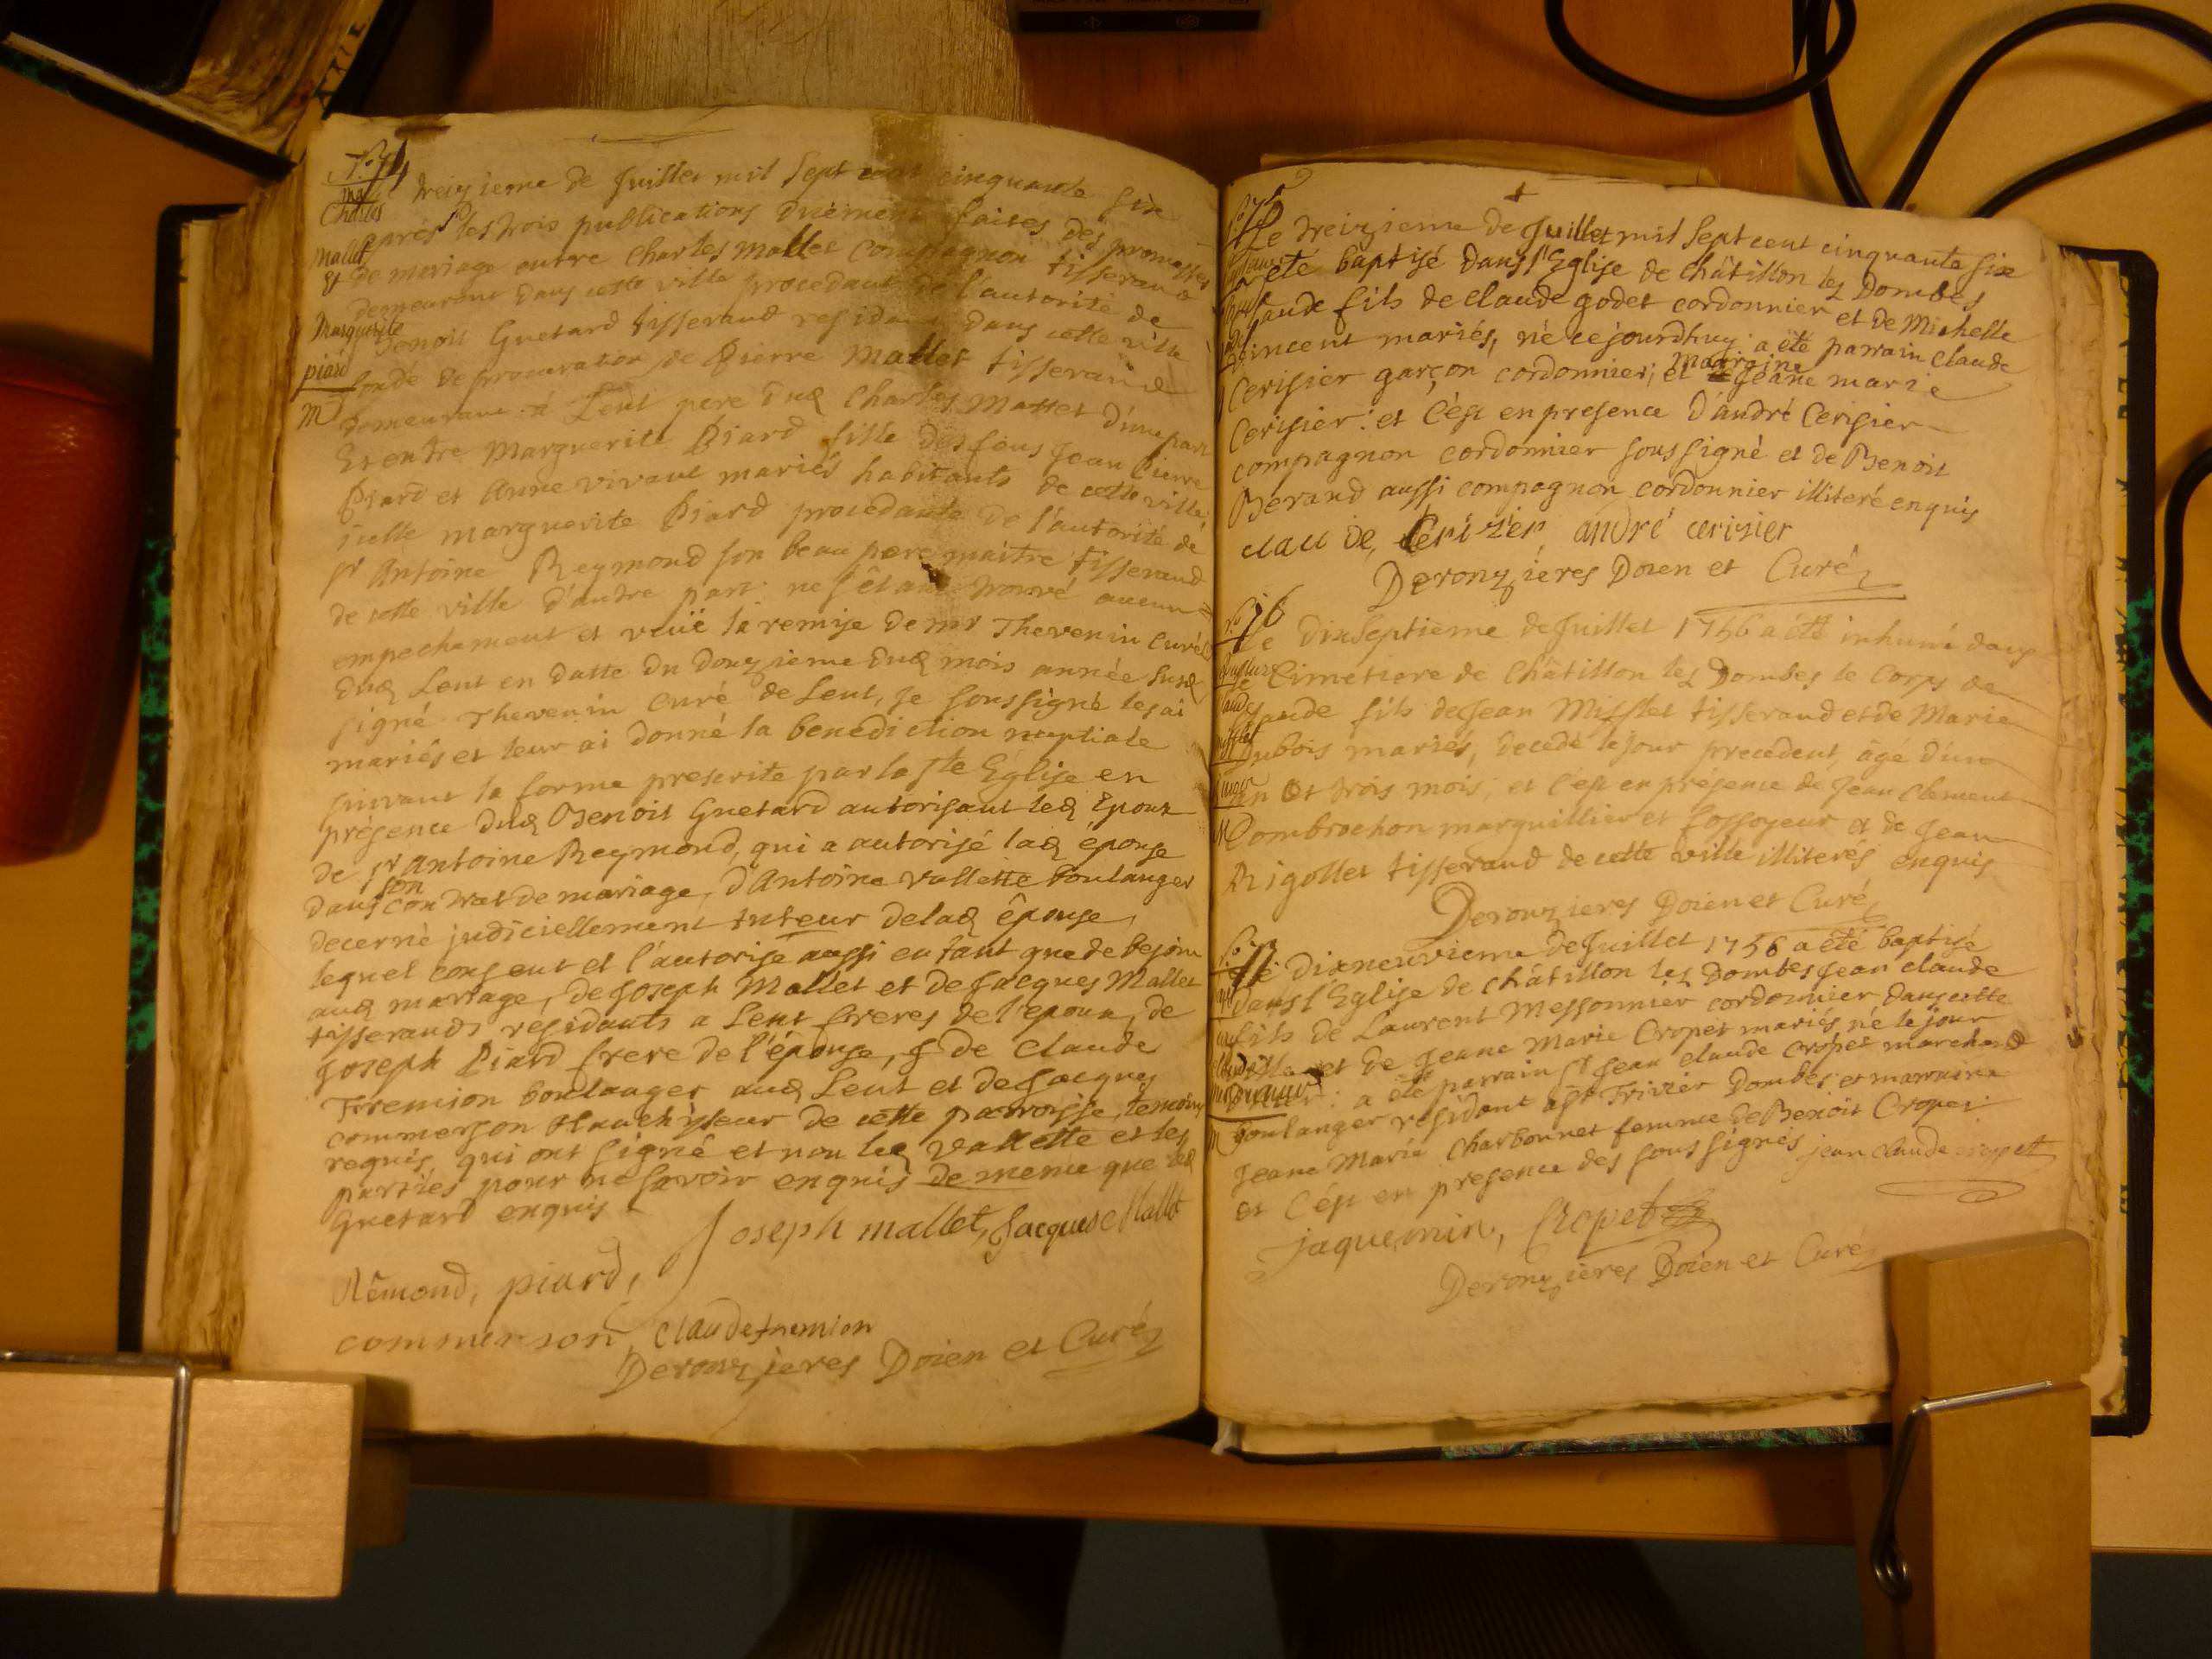 N.° 74
Le treizieme de Juillet mil Sept cent cinquante six
après les trois publications düement faites des promesses
de mariage entre Charles Mallet Compagnon tisserand
demeurant dans cette ville procedant de l'autorité de
Benoit Guetard tisserand residant dans cette ville
fondé de procuration de Pierre Mallet tisserand
demeurant à Lent pere dud Charles Mallet d'une part
Et entre Marguerite Piard fille des feus Jean Pierre
Piard et Anne vivant mariés habitants de cette ville
icelle marguerite Piard procedante de l'autorité de
sr Antoine Reymond son beau pere maitre tisserand
de cette ville d'autre part: ne s'étant trouvé aucun
empechament et veüe la remise de mr Thevenin curé
dud Lent en datte du douzieme dud mois année susd
signé Thevenin curé de Lent, je soussigné les ai
mariés et leur ai donné la benediction nuptiale
suivant la forme prescrite par la ste Eglise en
présence dud Benoit Guetard autorisant led Epoux
de sr Antoine Reymond, qui a autorisé lad épouse
dans son contrat de mariage, d'Antoine Vallette boulanger
decerné judiciellement tuteur de lad épouse,
lequel consent et l'autorise aussi en tant que de besoin
aud mariage, de Joseph Mallet et de Jacques Mallet
tisserands residants a Lent freres de l'epoux, de
Joseph Piard frere de l'épouse, & de Claude
Fremion boulanger aud Lent et de Jacques
commerson blanchisseur de cette parroisse, temoins
requis, qui ont signé et non led Vallette et les
parties pour ne savoir enquis de meme que led
Guetard enquis
Joseph mallet, Jacques Mallet
Rêmond, piard,
commerson, claude fremion
Deronzieres Doien et Curé
Charles
Mallet
et
Marguerite
piard
M
Le treizieme de Juillet mil Sept cent cinquante six
a été baptisé dans l'Eglise de Châtillon les Dombes
Claude fils de claude godet cordonnier et de Michelle
Vincent mariés, né cejourdhuy, a été parrain claude
Cerisier garçon cordonnier; et marraine Jeane marie
Cerisier: et c'est en presence d'andré Cerisier
compagnon cordonnier soussigné et de Benoit
Berand aussi compagnon cordonnier illiteré enquis
clau de, Cerizier andré cerizier
Deronzieres Doien et Curé
N.° 76
Le Dixseptieme de Juillet 1756 a été inhumé dans
le Cimetiere de Châtillon les Dombes le Corps de
Claude fils de Jean Mifflet tisserand et de Marie
Dubois mariés, decedé le jour precedent, âgé d'un
an et trois mois, et c'est en présence de Jean Clement
Dombrochon marguillier et fossoyeur et de Jean
Rigollet tisserand de cette ville illiterés enquis
Deronzieres Doien et Curé
Le Dixneuvieme de Juillet 1756 a été baptisé
dans l'Eglise de châtillon les Dombes Jean claude
fils de Laurent Messonnier cordonnier dans cette
ville et de Jeane Marie Cropet mariés né le jour
: a été parrain sr Jean claude Cropet marchand
boulanger residant à st Trivier Dombes et marraine
Jeane Marie Charbonnet femme de Benoit Cropet
et c'est en presence des soussignés jean claude cropet
jaquemin, Cropet
Deronzieres Doien et Curé